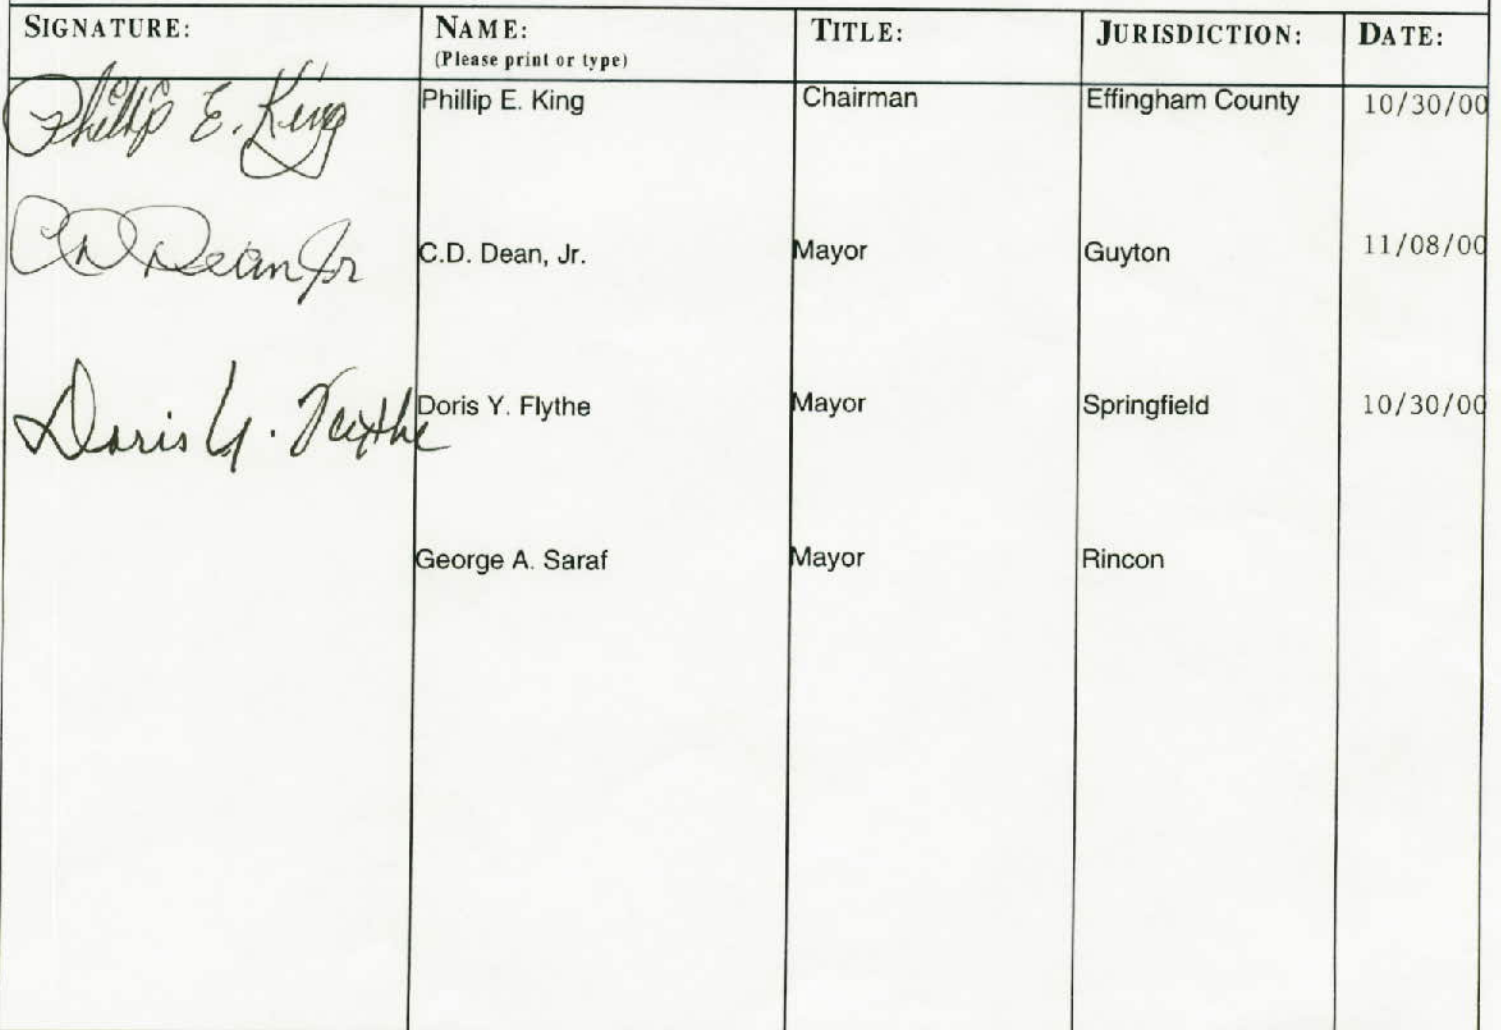 SIGNATURE: NAME: TITLE: JURISDICTION: DATE:
(Please print or type)
Phillip E. King Phillip E. King Chairman Effingham County 10/30/00
CD Dean Jr C.D. Dean, Jr. Mayor Guyton 11/08/00
Doris Y. Flythe Doris Y. Flythe Mayor Springfield 10/30/00
George A. Saraf Mayor Rincon